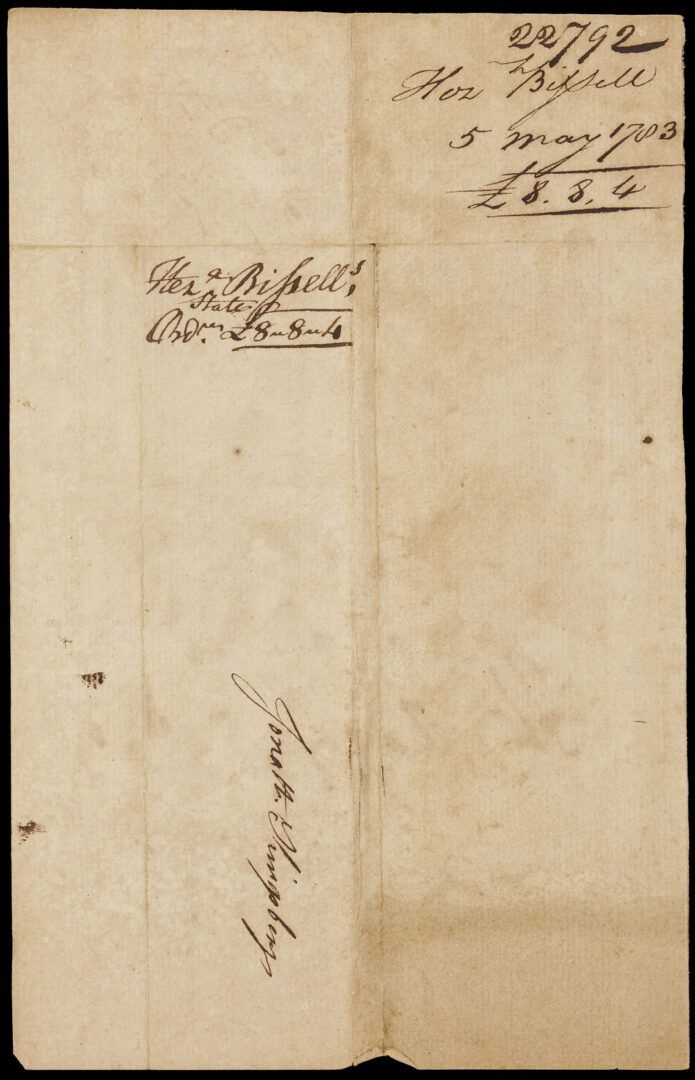 22792
Hezh Bissell
5 may 1783
£8.8.4
Heza Bissell's
State
Ordrs £8-8-4
Jonath.